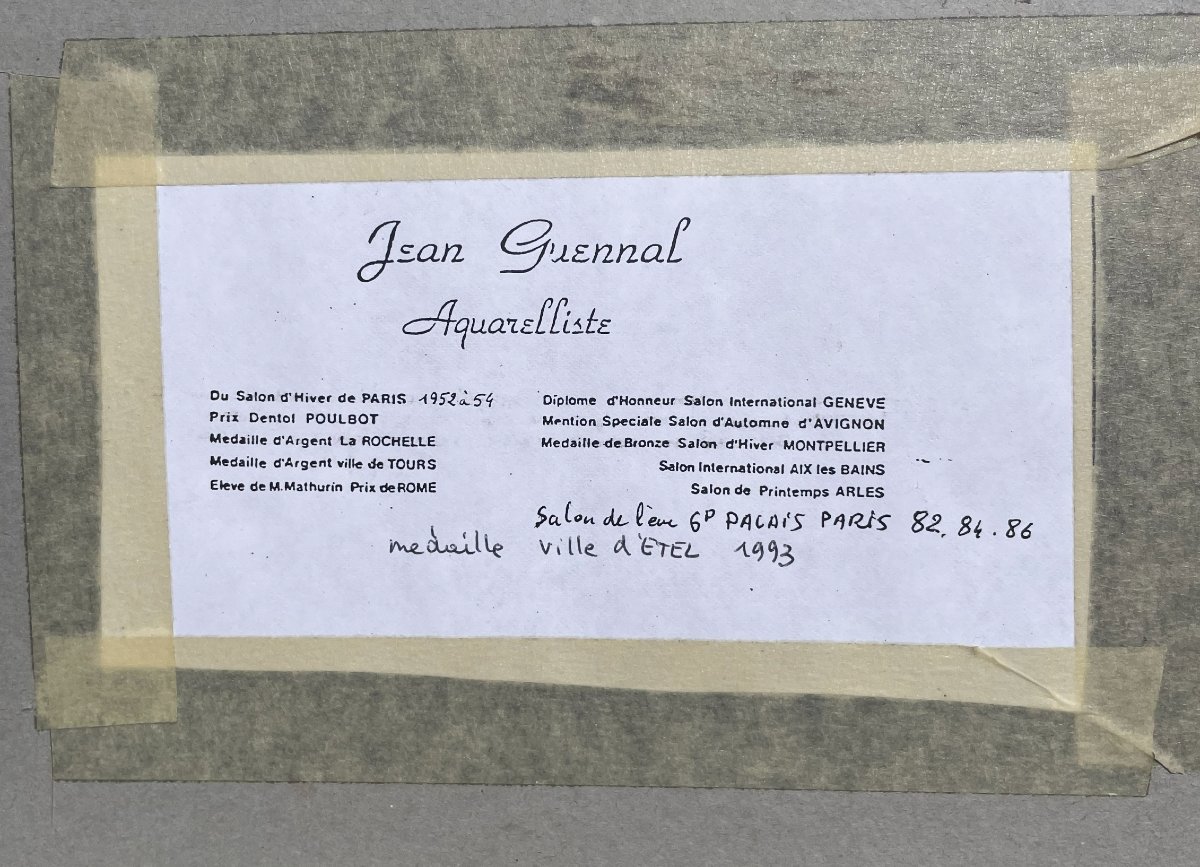 Jean Guennal
Aquarelliste
Du Salon d'Hiver de PARIS 1952 à 54
Prix Dentol POULBOT
Medaille d'Argent La ROCHELLE
Medaille d'Argent ville de TOURS
Eleve de M. Mathurin Prix de ROME
Diplome d'Honneur Salon International GENEVE
Mention Speciale Salon d'Automne d'AVIGNON
Medaille de Bronze Salon d'Hiver MONTPELLIER
Salon International AIX les BAINS
Salon de Printemps ARLES
Salon de PALAIS PARIS 82. 84. 86
medaille ville d'ETEL 1993